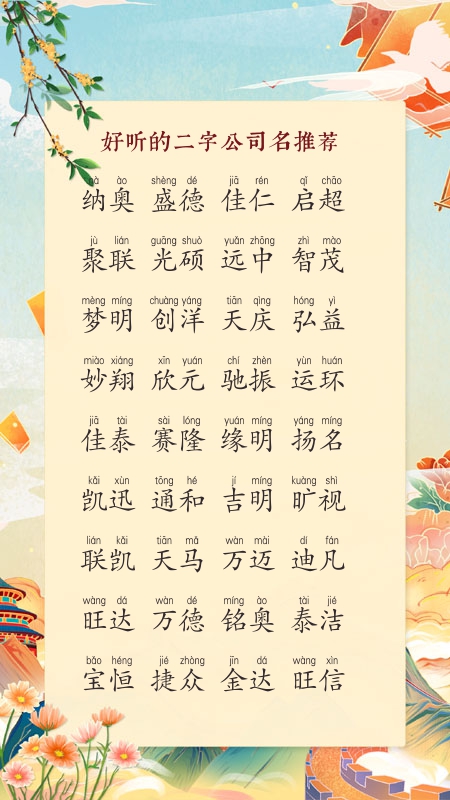 好听的二字公司名推荐
nà ào shèng dé jiā rén qǐ chāo
纳奥 盛德 佳仁 启超
jù lián guāng shuò yuǎn zhōng zhì mào
聚联 光硕 远中 智茂
mèng míng chuàng yáng tiān qìng hóng yì
梦明 创洋 天庆 弘益
miào xiáng xīn yuán chí zhèn yùn huán
妙翔 欣元 驰振 运环
jiā tài sài lóng yuán míng yáng míng
佳泰 赛隆 缘明 扬名
kǎi xùn tōng hé jí míng kuàng shì
凯迅 通和 吉明 旷视
lián kǎi tiān mǎ wàn mài dí fán
联凯 天马 万迈 迪凡
wàng dá wàn dé míng ào tài jié
旺达 万德 铭奥 泰洁
bǎo héng jié zhòng jīn dá wàng xìn
宝恒 捷众 金达 旺信